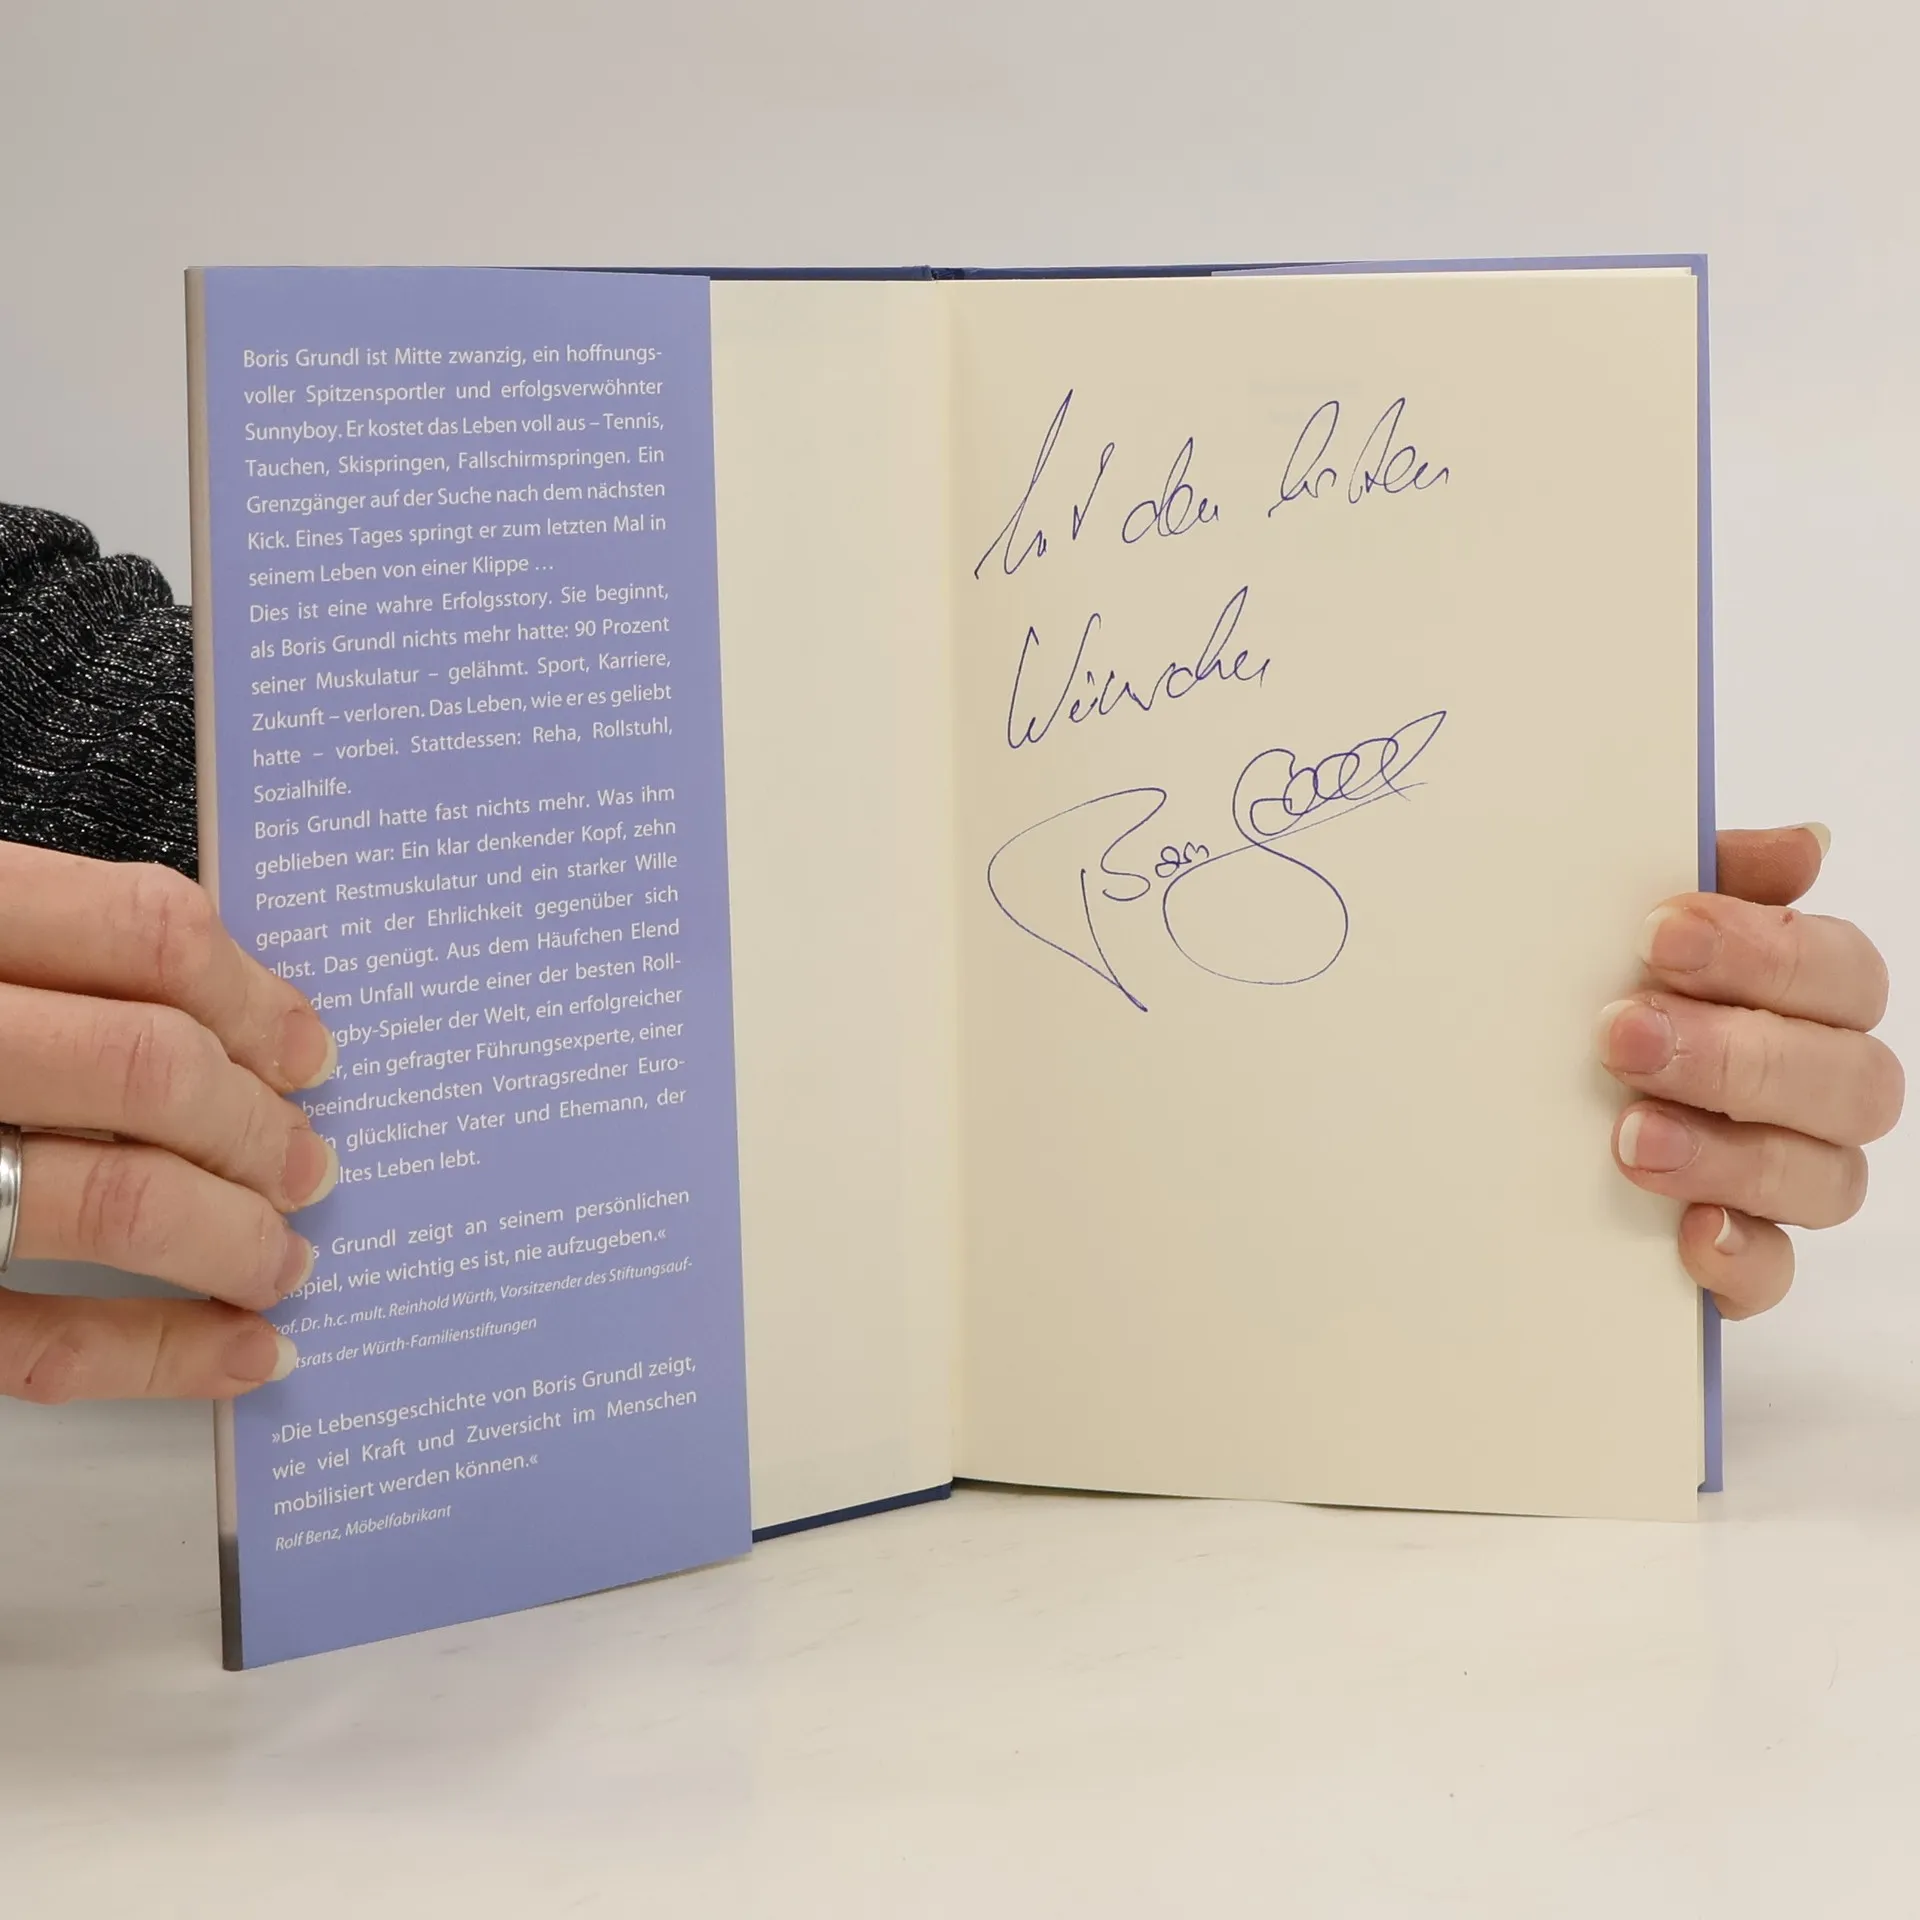 Boris Grundl ist Mitte zwanzig, ein hoffnungs-
voller Spitzensportler und erfolgsverwöhnter
Sunnyboy. Er kostet das Leben voll aus – Tennis,
Tauchen, Skispringen, Fallschirmspringen. Ein
Grenzgänger auf der Suche nach dem nächsten
Kick. Eines Tages springt er zum letzten Mal in
seinem Leben von einer Klippe ...
Dies ist eine wahre Erfolgsstory. Sie beginnt,
als Boris Grundl nichts mehr hatte: 90 Prozent
seiner Muskulatur – gelähmt. Sport, Karriere,
Zukunft – verloren. Das Leben, wie er es geliebt
hatte – vorbei. Stattdessen: Reha, Rollstuhl,
Sozialhilfe.
Boris Grundl hatte fast nichts mehr. Was ihm
geblieben war: Ein klar denkender Kopf, zehn
Prozent Restmuskulatur und ein starker Wille
gepaart mit der Ehrlichkeit gegenüber sich
elbst. Das genügt. Aus dem Häufchen Elend
dem Unfall wurde einer der besten Roll-
gby-Spieler der Welt, ein erfolgreicher
er, ein gefragter Führungsexperte, einer
beeindruckendsten Vortragsredner Euro-
n glücklicher Vater und Ehemann, der
ltes Leben lebt.
s Grundl zeigt an seinem persönlichen
eispiel, wie wichtig es ist, nie aufzugeben.«
rof. Dr. h.c. mult. Reinhold Würth, Vorsitzender des Stiftungsauf-
tsrats der Würth-Familienstiftungen
»Die Lebensgeschichte von Boris Grundl zeigt,
wie viel Kraft und Zuversicht im Menschen
mobilisiert werden können.«
Rolf Benz, Möbelfabrikant
Mit den besten
Wünschen
Boris Grundl